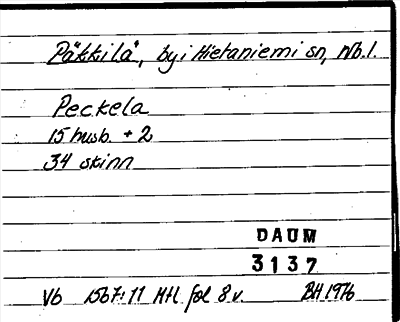 Päkkilä, by i Hietaniemi sn, Nb.l.
Peckela
15 husb. + 2
34 skinn
DAUM
3137
Vb 1567:11 Htl fol 8 v. BH 1976